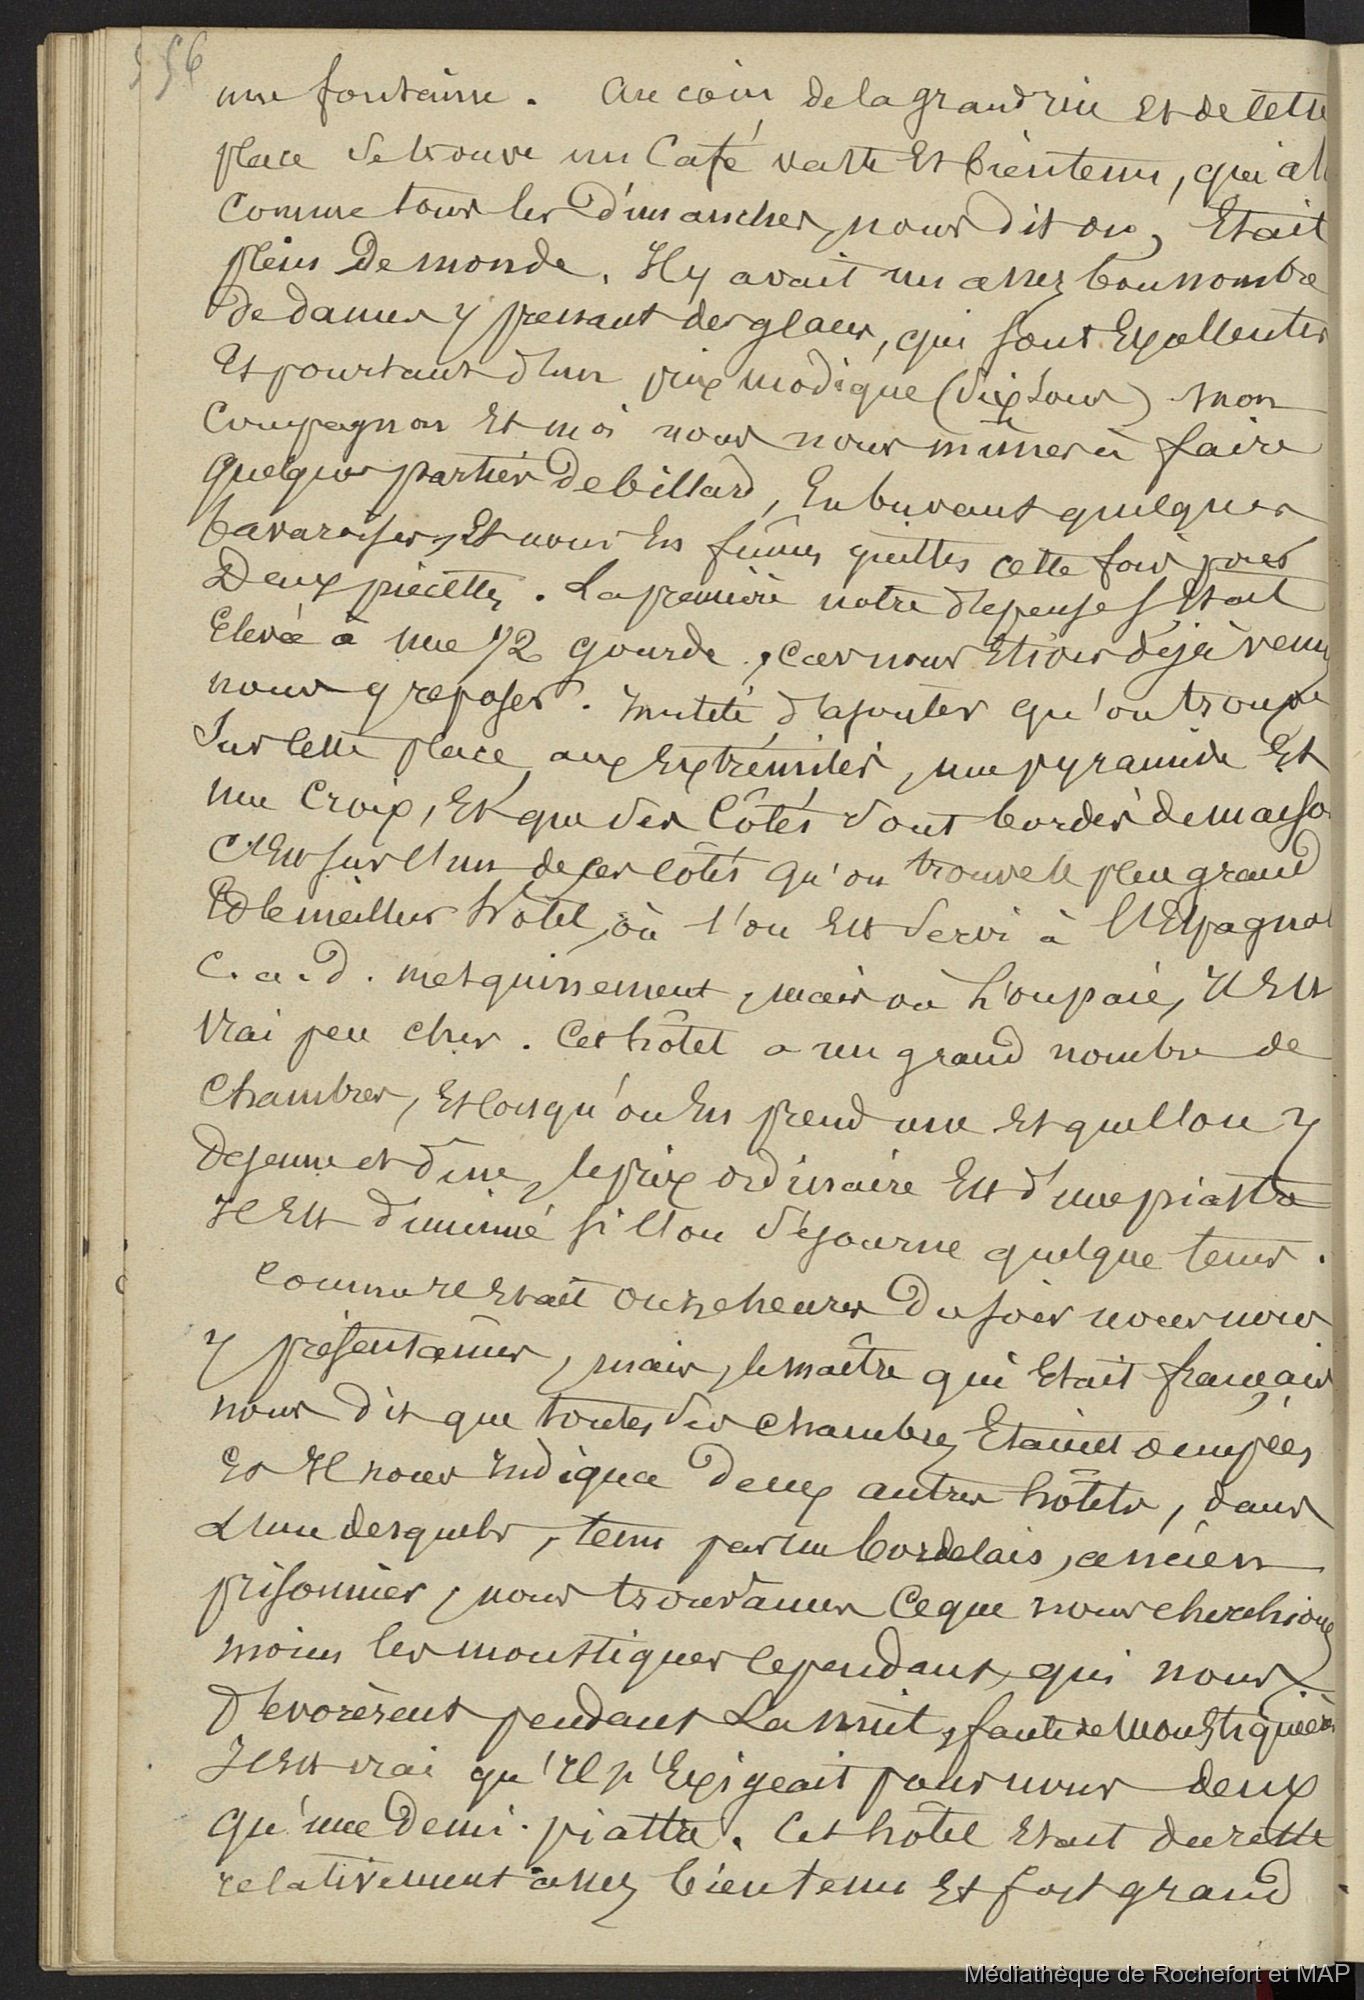 556
une fontaine. Au coin de la grand rue et de cette
place se trouve un Café vaste Et bien tenu, qui
comme tous les Dimanches, nous dit on, Etait
plein De monde. Il y avait un assez bon nombre
de dames y prenant des glaces, qui sont Excellentes
Et pourtant d'un prix modique (dix sous) mon
Compagnon Et moi nous nous mîmes à faire
quelques parties De billard, En buvant quelques
bavaroises, Et nous En fûmes quittes cette fois pour
Deux piécettes. La première notre dépense s'Etait
Elevée à une 1/2 gourde, car nous Etions déjà venus
nous y reposer. Inutile d'ajouter qu'on trouve
Sur cette place, aux Extrémités, une pyramide Et
une Croix, Et que ses Côtés sont bordés de maiso
C'Est sur l'un de ces côtés qu'on trouve le plus grand
Et le meilleur hôtel, où l'on Est servi à l'Espagnol
C. a. d. mesquinement, mais où l'on paie, Il Est
Vrai peu cher. Cet hôtel a un grand nombre de
Chambres, Et lorsqu'on En prend une Et que l'on y
Déjeune et dîne, le prix ordinaire Est d'une piastre
Il Est diminué si l'on séjourne quelque tems.
Comme il Etait Onze heures Du soir nous nous
y présentâmes, mais, le maître qui Etait français
nous dit que toutes ses chambres Etaient occupées
Et Il nous Indiqua Deux autres hôtels, dans
L'un desquels, tenu par un bordelais, ancien
prisonnier, nous trouvames Ce que nous cherchions
moins les moustiques cependant, qui nous
Dévorèrent pendant La nuit, faute de moustiquaires
Il Est vrai qu'Il n'Exigeait pour nous deux
qu'une Demi-piastre. Cet hôtel Etait du reste
relativement assez bien tenu Et fort grand
Médiathèque de Rochefort et MAP